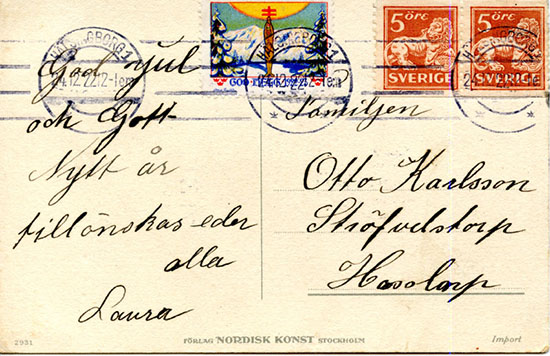 HÄLSINGBORG 1
24.12.22.12-1em
GOD JUL
5 ÖRE 5 ÖRE
SVERIGE SVERIGE
God Jul
och Gott
Nytt år
tillönskas eder
alla
Laura
Familjen
Otto Karlsson
Ströfvelstorp
Hasslarp
2931
FÖRLAG NORDISK KONST STOCKHOLM
Import